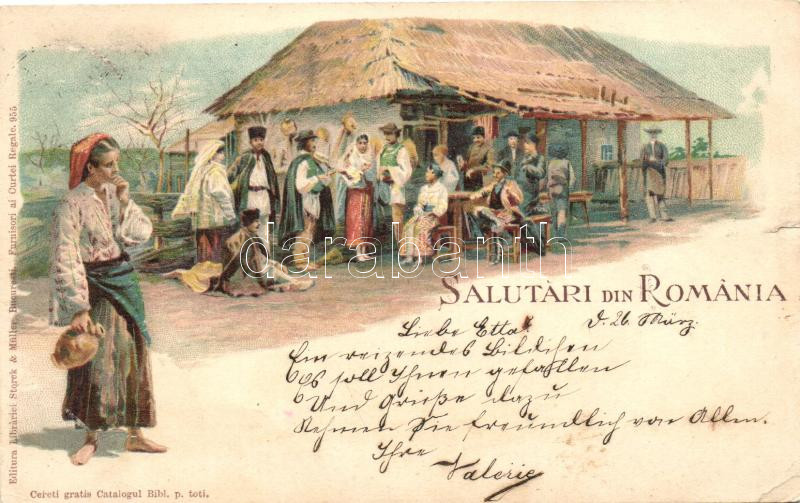 SALUTĂRI DIN ROMÂNIA
Liebe Etta! d. 26. März.
Ein reizendes Bildchen
Es soll Ihnen gefallen
Und Grüße dazu
Nehmen Sie freundlich von Allen.
Ihre
Valerie
Editura Librăriei Storck & Müller, Bucuresti, Furnisori ai Curtei Regale. 955
Cereti gratis Catalogul Bibl. p. toti.
darabanth